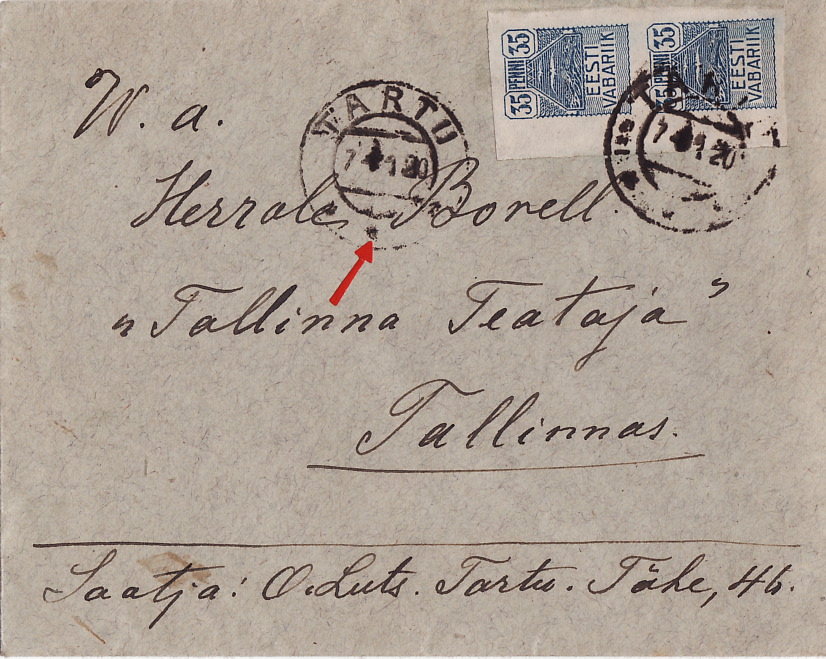 35 PENNI 35
EESTI
VABARIIK
35 PENNI 35
EESTI
VABARIIK
TARTU
7 4 1 20
TARTU
7 4 1 20
W. a.
Herrale Borell.
„Tallinna Teataja”
Tallinnas.
Saatja: O. Luts. Tartu. Tähe, 46.